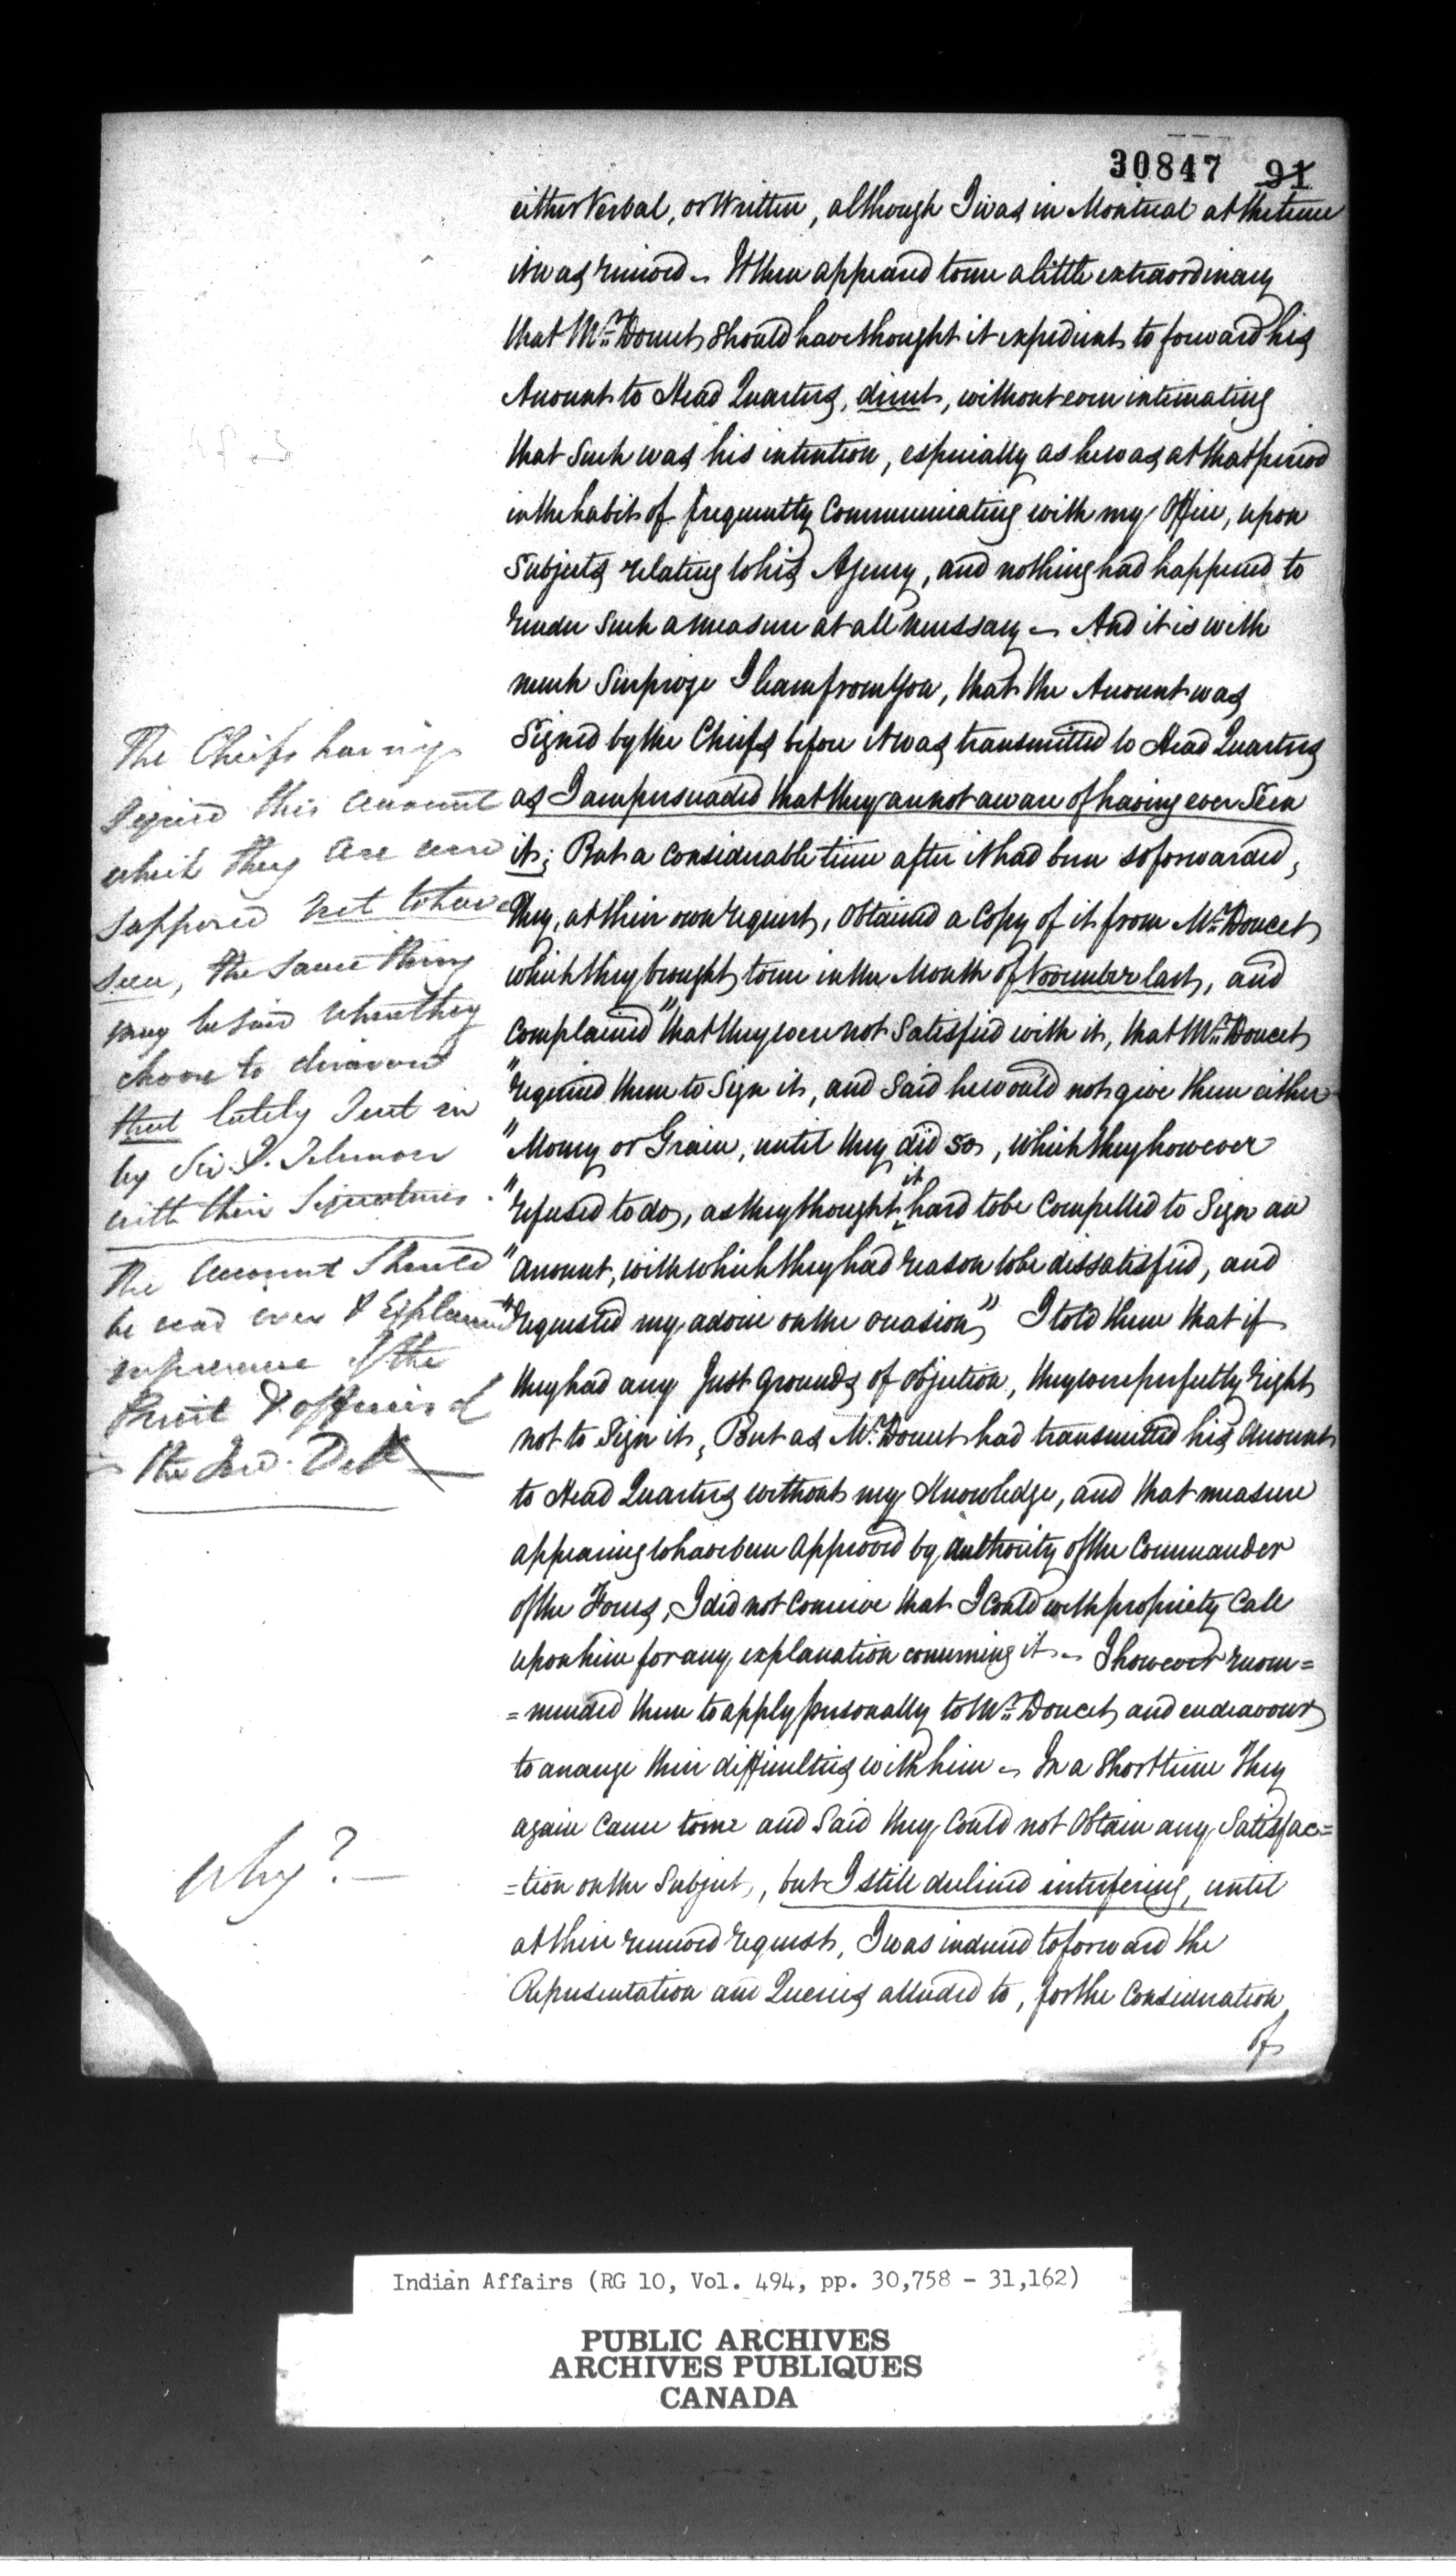 30847 91
either Verbal, or Written, although I was in Montreal at the time
it was received – It then appeared to me a little extraordinary
that Mr. Doucet should have thought it expedient to forward his
Account to Head Quarters, direct, without even intimating
that such was his intention, especially as he was at that period
in the habit of frequently Communicating with my Office, upon
Subjects relating to his Agency, and nothing had happened to
render such a measure at all necessary – And it is with
much Surprize I learn from You, that the Account was
Signed by the Chiefs before it was transmitted to Head Quarters
as I am persuaded that they are not aware of having ever Seen
it; But a considerable time after it had been so forwarded,
They, at their own request, obtained a Copy of it from Mr. Doucet
which they brought to me in the Month of November last, and
Complained "that they were not Satisfied with it, that Mr. Doucet
"required them to Sign it, and Said he would not give them either
"Money or Grain, until they did so, which they however
"refused to do, as they thought it hard to be Compelled to Sign an
"Account, with which they had reason to be dissatisfied, and
"requested my advice on the occasion" I told them that if
they had any Just grounds of objection, they were perfectly right
not to Sign it, But as Mr. Doucet had transmitted his Account
to Head Quarters without my Knowledge, and that measure
appearing to have been Approved by authority of the Commander
of the Forces, I did not Conceive that I could with propriety Call
upon him for any explanation concerning it – I however recom=
=mended them to apply personally to Mr. Doucet and endeavour
to arrange their difficulties with him – In a Short time They
again Came to me and Said they Could not Obtain any Satisfac=
=tion on the Subject, but I still declined interfering, until
at their renewed request, I was induced to forward the
Representation and Queries alluded to, for the Consideration
of
The Cheifs having
Signed this account
which they are now
supposed not to have
seen, the same thing
may be said when they
choose to disavow
that lately sent in
by Sir J. Johnson
with their Signatures.
The account should
be read over & Explained
in presence of the
Priest & officers of
the Ind. Dept
Why? –
Indian Affairs (RG 10, Vol. 494, pp. 30,758 - 31,162)
PUBLIC ARCHIVES
ARCHIVES PUBLIQUES
CANADA